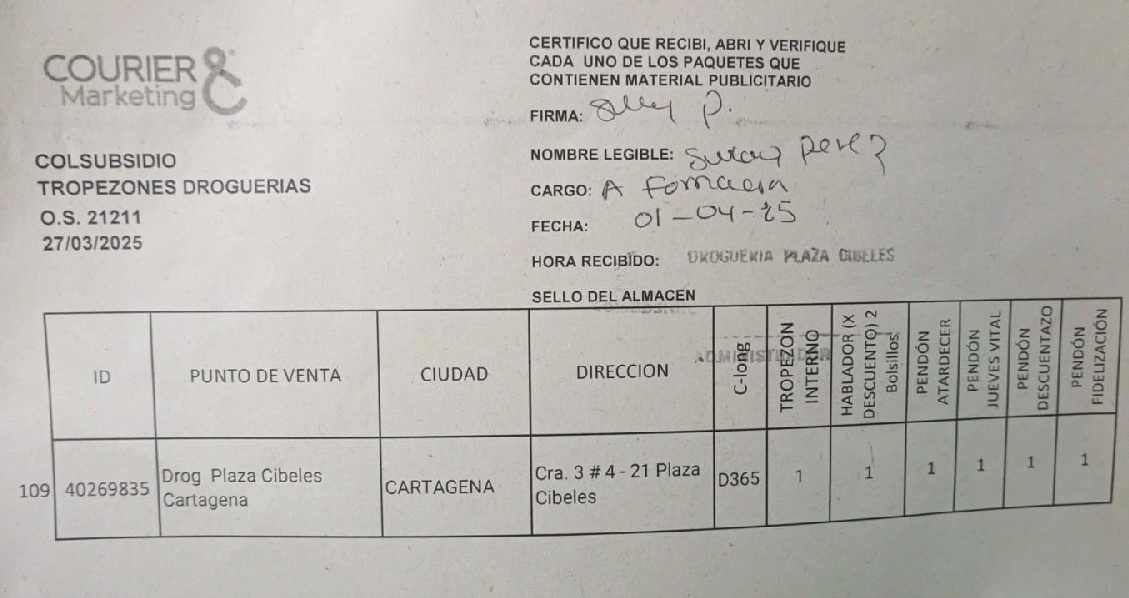 COURIER &
Marketing
COLSUBSIDIO
TROPEZONES DROGUERIAS
O.S. 21211
27/03/2025
CERTIFICO QUE RECIBI, ABRI Y VERIFIQUE
CADA UNO DE LOS PAQUETES QUE
CONTIENEN MATERIAL PUBLICITARIO
FIRMA:
NOMBRE LEGIBLE: Perez
CARGO: A Farmacia
FECHA: 01-04-25
HORA RECIBIDO: DROGUERIA PLAZA CIBELES
SELLO DEL ALMACEN
ADMINISTRADOR
ID PUNTO DE VENTA CIUDAD DIRECCION C-long TROPEZON INTERNO HABLADOR (X DESCUENTO) 2 Bolsillos. PENDÓN ATARDECER PENDÓN JUEVES VITAL PENDÓN DESCUENTAZO PENDÓN FIDELIZACIÓN
109 40269835 Drog Plaza Cibeles Cartagena CARTAGENA Cra. 3 # 4 - 21 Plaza Cibeles D365 1 1 1 1 1 1